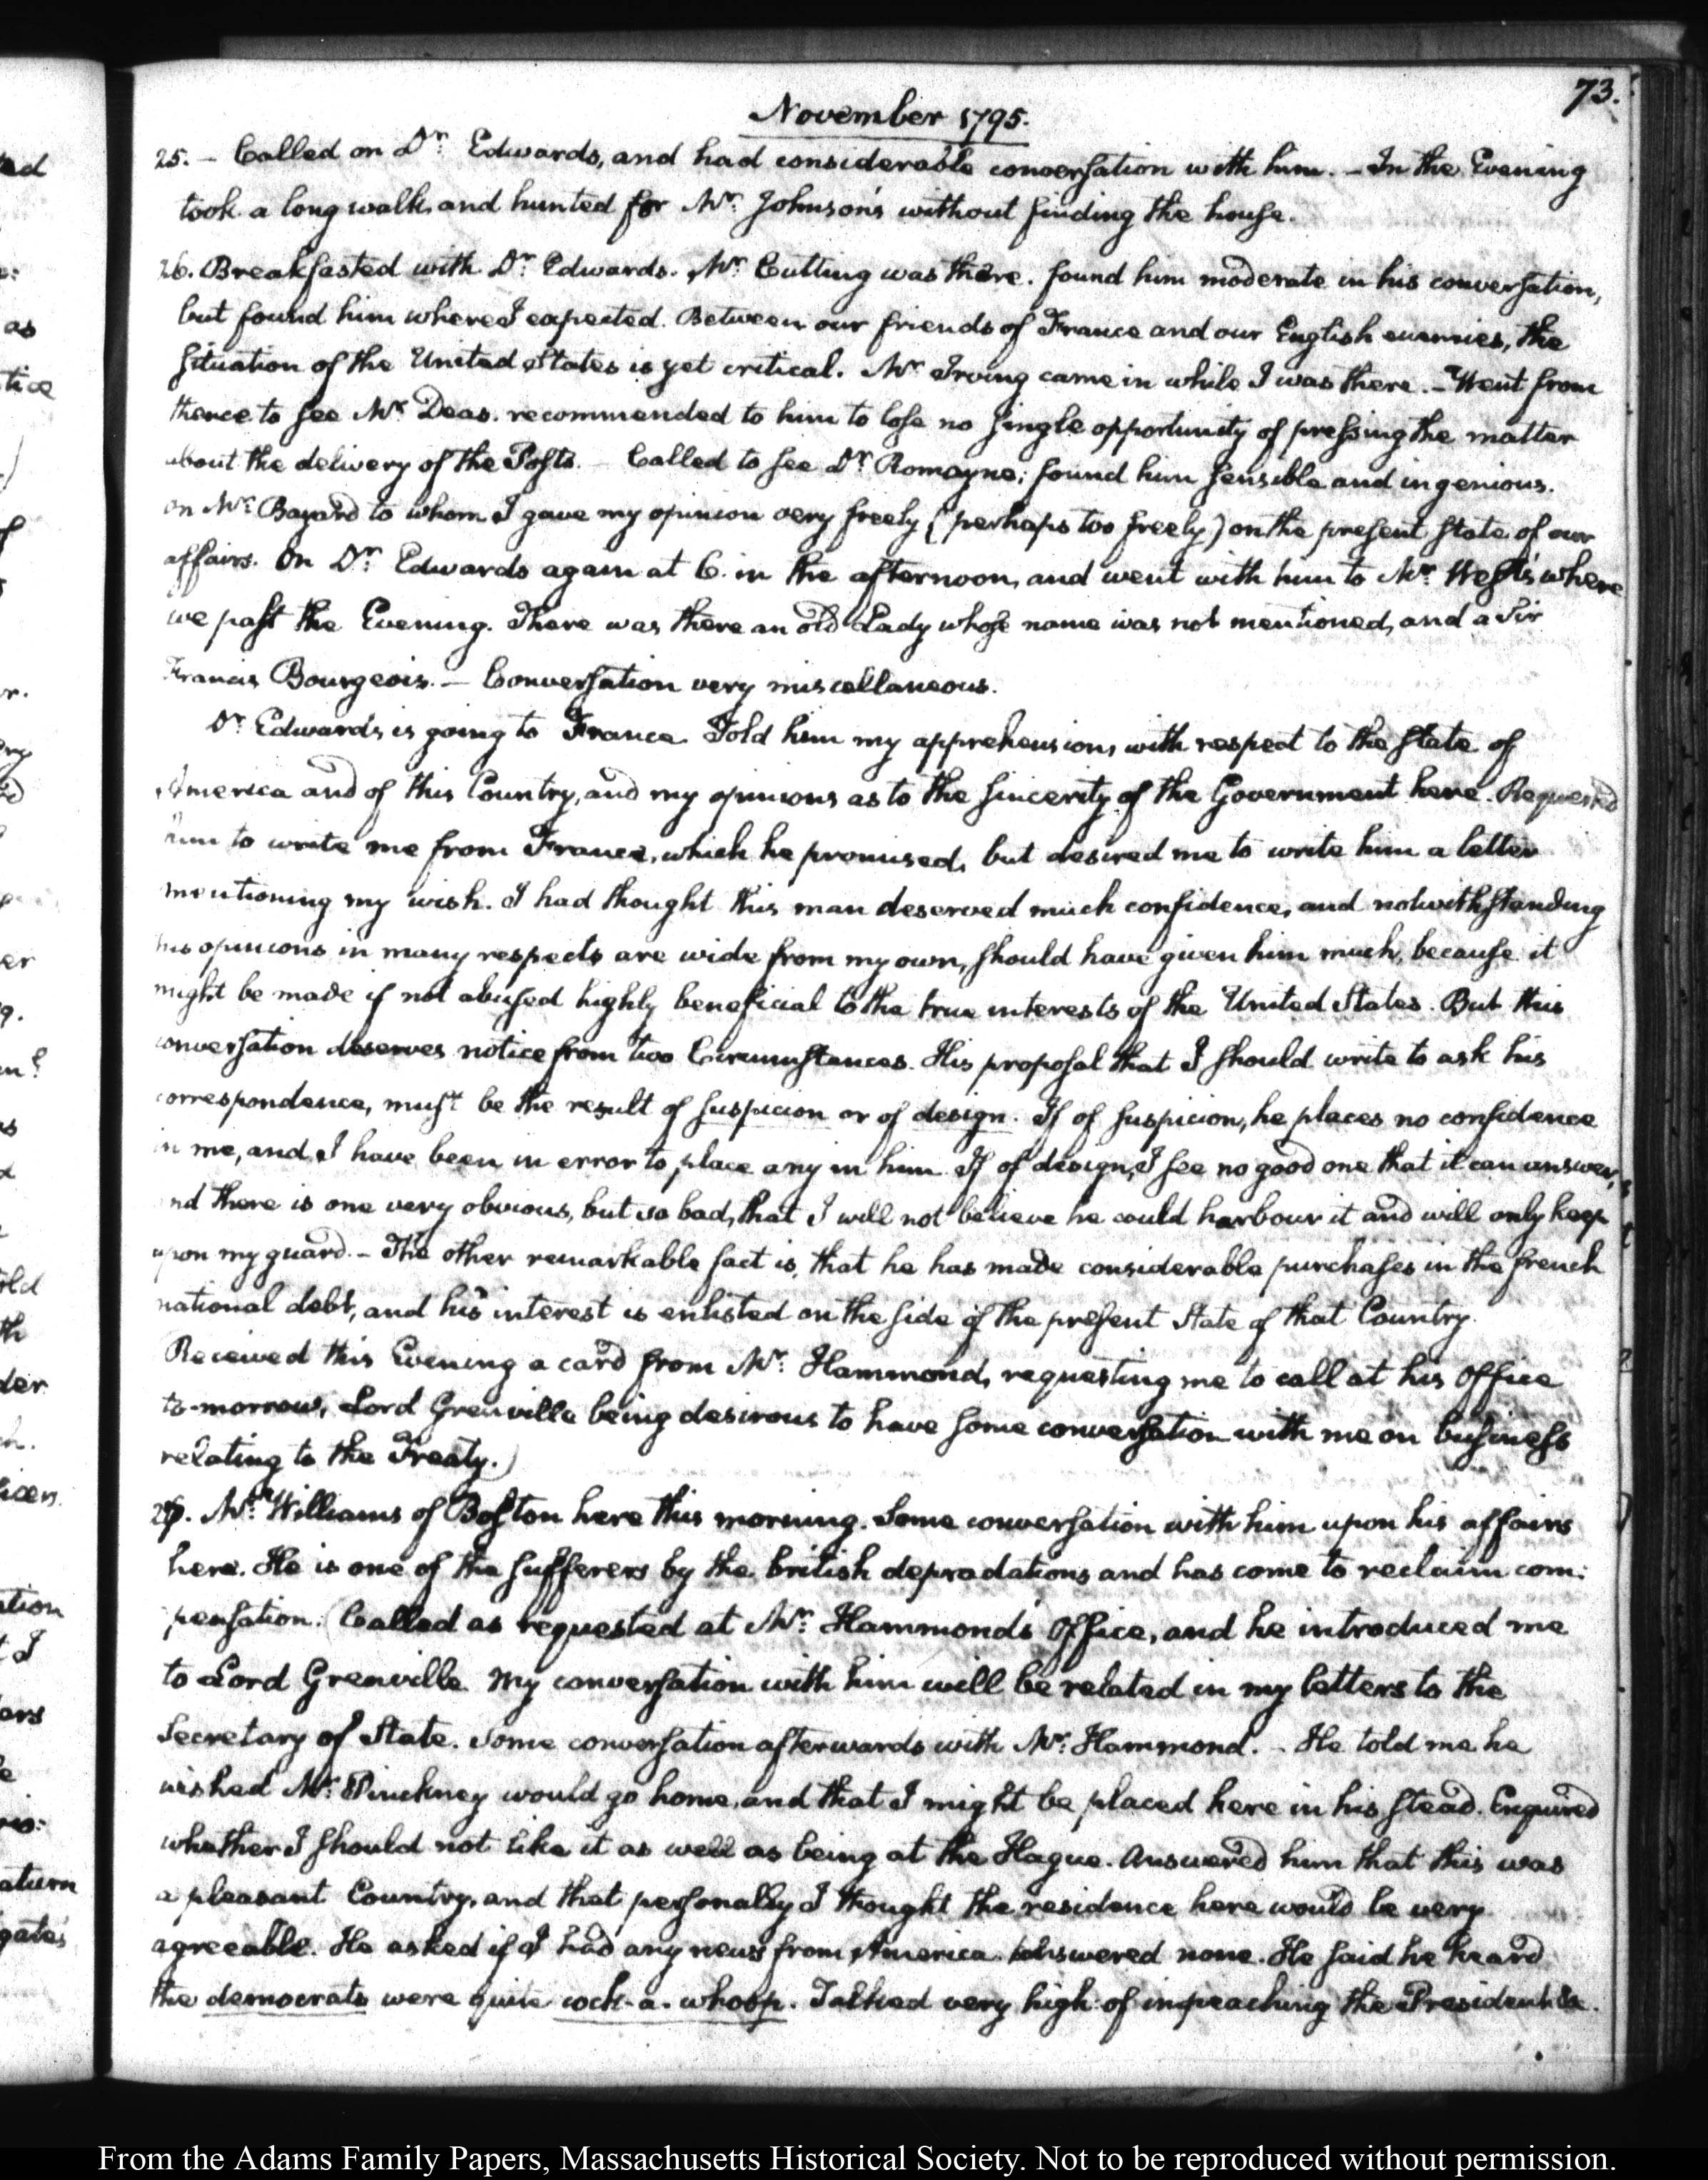 73.
November 1795.
25. – Called on Dr. Edwards, and had considerable conversation with him. – In the Evening
took a long walk, and hunted for Mr. Johnson's without finding the house.
26. Breakfasted with Dr. Edwards. Mr. Cutting was there. found him moderate in his conversation,
but found him where I expected. Between our friends of France and our English enemies, the
situation of the United States is yet critical. Mr. Irving came in while I was there. – Went from
thence to see Mr. Deas. recommended to him to lose no single opportunity of pressing the matter
about the delivery of the Posts. – Called to see Dr. Romayne; found him sensible and ingenious.
on Mr. Bayard to whom I gave my opinion very freely (perhaps too freely) on the present state of our
affairs. On Dr. Edwards again at 6. in the afternoon, and went with him to Mr. West's where
we past the Evening. There was there an old Lady whose name was not mentioned, and a Sir
Francis Bourgeois. – Conversation very miscellaneous.
Dr. Edwards is going to France. Told him my apprehensions with respect to the state of
America and of this Country, and my opinions as to the sincerity of the Government here. Requested
him to write me from France, which he promised, but desired me to write him a letter
mentioning my wish. I had thought this man deserved much confidence, and notwithstanding
his opinions in many respects are wide from my own, should have given him much, because it
might be made if not abused highly beneficial to the true interests of the United States. But this
conversation deserves notice from two Circumstances. His proposal that I should write to ask his
correspondence, must be the result of suspicion or of design. If of suspicion, he places no confidence
in me, and I have been in error to place any in him. If of design, I see no good one that it can answer,
and there is one very obvious, but so bad, that I will not believe he could harbour it and will only keep
upon my guard. – The other remarkable fact is, that he has made considerable purchases in the french
national debt, and his interest is enlisted on the side of the present State of that Country.
Received this Evening a card from Mr. Hammond, requesting me to call at his Office
to-morrow, Lord Grenville being desirous to have some conversation with me on business
relating to the Treaty.)
27. Mr. Williams of Boston here this morning. Some conversation with him upon his affairs
here. He is one of the sufferers by the british depradations and has come to reclaim com:
pensation. (Called as requested at Mr. Hammond's Office, and he introduced me
to Lord Grenville. My conversation with him will be related in my letters to the
Secretary of State. Some conversation afterwards with Mr. Hammond. – He told me he
wished Mr. Pinckney would go home, and that I might be placed here in his stead. Enquired
whether I should not like it as well as being at the Hague. Answered him that this was
a pleasant Country, and that personally I thought the residence here would be very
agreeable. He asked if I had any news from America. Answered none. He said he heard
the democrats were quite cock-a-whoop. Talked very high of impeaching the President &c.
From the Adams Family Papers, Massachusetts Historical Society. Not to be reproduced without permission.